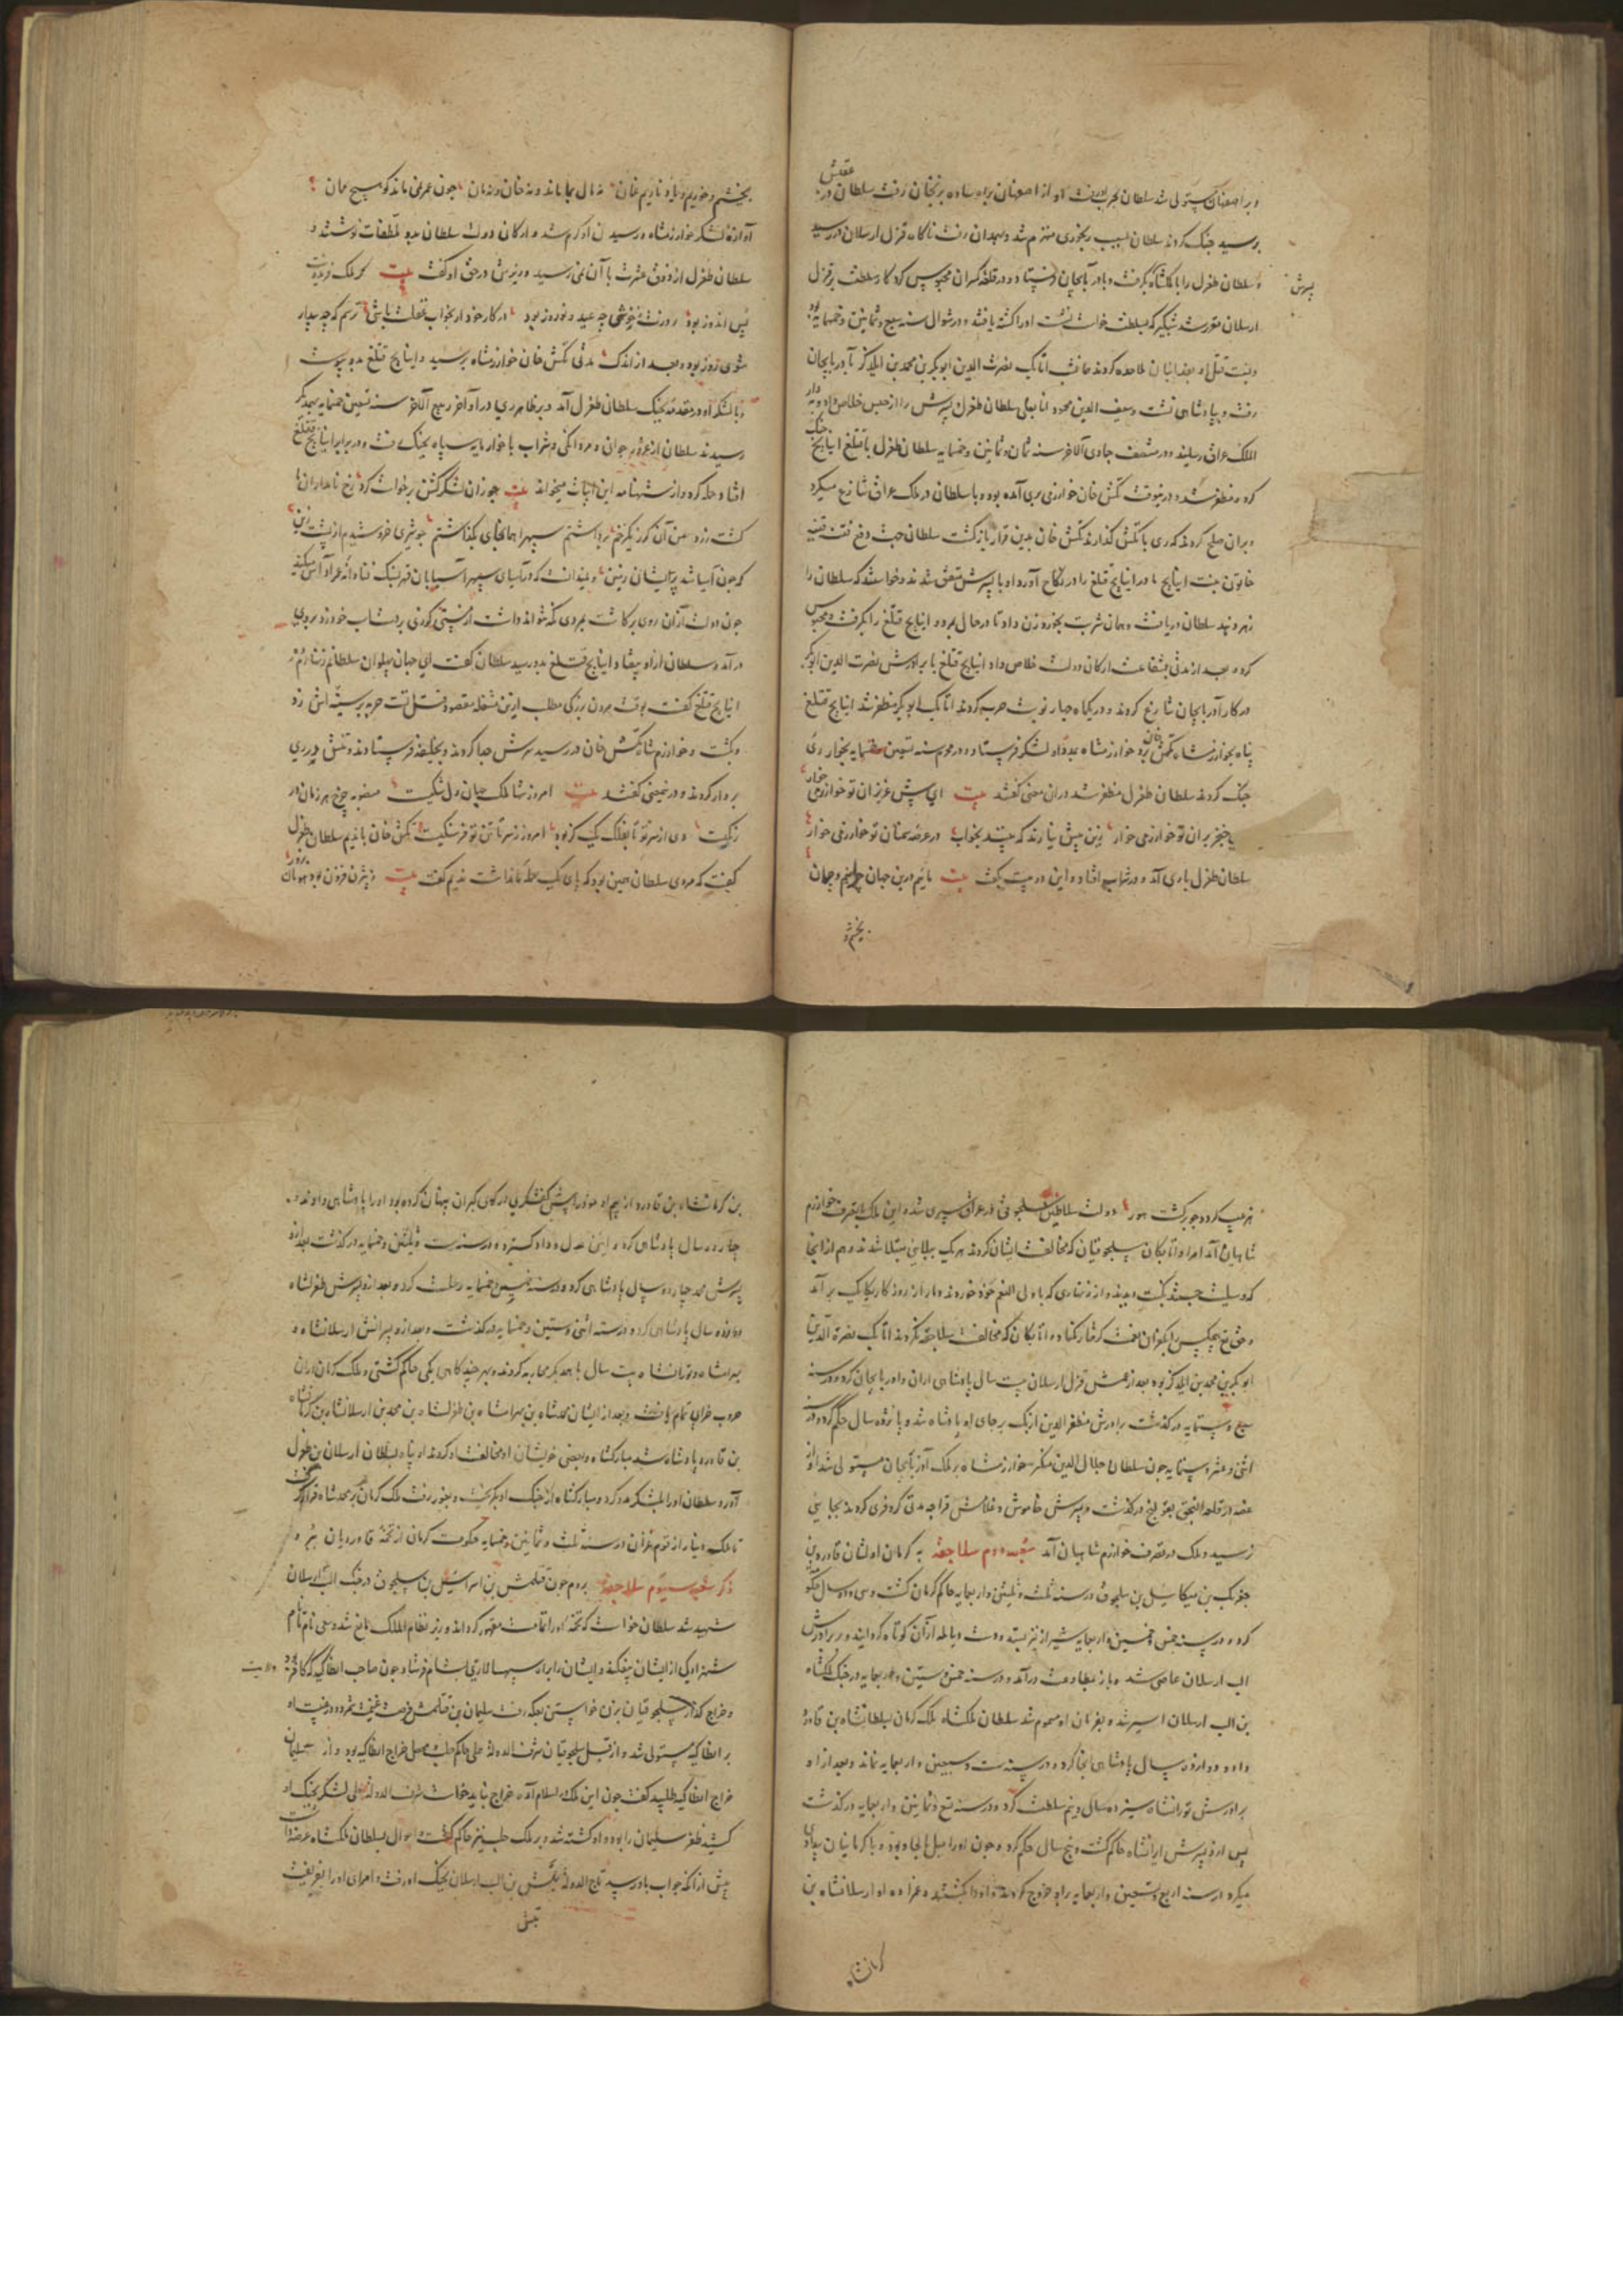 و بر اصفهان مستولی شد سلطان بحرب او رفت او از اصفهان براه ساوه بزنجان رفت سلطان در عقبش
برسید جنک کردند سلطان بسبب رنجوری منهزم شد و بهمدان رفت ناکاه قزل ارسلان در رسید
و سلطان طغرل را با ملکشاه پسرش بکرفت و بآذربایجان فرستاد و در قلعه کهران محبوس کرد کار سلطنت بر قزل
ارسلان مقرر شد شبکیر که بسلطنت خواست نشست او را کشته یافتند در شوال سنه سبع و ثمانین و خمسمایه بود
و نسبت قتل او بفدائیان ملاحده کردند اتابک نصرت الدین ابوبکر بن محمد بن ایلدکز بآذربایجان
رفت و بپادشاهی نشست و سیف الدین محمود اناسغلی سلطان طغرل پسرش را از حبس خلاص داد و بدار
الملک عراق رسانید و در منتصف جمادی الآخر سنه ثمان و ثمانین و خمسمایه سلطان طغرل با قتلغ اینانج جنک
کرد و مظفر شد و در نوبت تکش خان خوارزمی بری آمده بود و با سلطان در ملک عراق تنازع میکرد
بر آن صلح کردند که ری با تکش کذارند تکش خان بدین قرار بازکشت سلطان جهت دفع فتنه قتیبه
خاتون بنت اینانج مادر اینانج قتلغ را در نکاح آورد او با پسرش متفق شدند و خواستند که سلطان را
زهر دهند سلطان دریافت و همان شربت بخورد زن داد تا در حال بمرد و اینانج قتلغ را بکرفت و محبوس
کرد و بعد از مدتی بشفاعت ارکان دولت خلاص داد اینانج قتلغ با برادرش نصرت الدین ابوبکر
در کار آذربایجان تنازع کردند و در یکماه چهار نوبت حرب کردند اتابک ابوبکر مظفر شد اینانج قتلغ
پناه بخوارزمشاه تکش خان برد خوارزمشاه بمدد او لشکر فرستاد و در محرم سنه تسعین و خمسمایه بخوار ری
جنک کردند سلطان طغرل مظفر شد در آن معنی کفتند بیت ای پیش عزیزان تو خوارزمی خوار
با خنجر بران تو خوارزمی خوار زین پیش نیارند که بینند بخواب در عرصه سمنان تو خوارزمی خوار
سلطان طغرل با ری آمد و در شراب افتاد و این دو بیت بکفت بیت مائیم درین جهان چرانیم و چمان
بخشم و
بخشیم و خوریم و یاد ناریم غمان نه مال بما ماند و نه خان و نه مان چون عمر نمی ماند کو هیچ ممان
آوازه لشکر خوارزمشاه و رسیدن او کرم شد و ارکان دولت سلطان بدو ملطفات نوشتند و
سلطان طغرل از ذوق عشرت با آن نمی رسید وزیرش در حق او کفت بیت کر ملک فریدونت
پس اندوز بود روزت ز خوشی چو عید و نوروز بود در کار خود ار بخواب غفلت باشی ترسم که چو بیدار
شوی روز بود و بعد از اندک مدتی تکش خان خوارزمشاه برسید و اینانج قتلغ بدو پیوست
و با لشکر او در مقدمه بجنک سلطان طغرل آمد و بر ظاهر ری در اواخر ربیع الآخر سنه تسعین و خمسمایه بهم دیکر
رسیدند سلطان از غرور جوانی و مردانکی و شراب با خوار مایه سپاه بجنک رفت و در برابر اینانج قتلغ
افتاد حمله کرد و از شهنامه این ابیات میخواند بیت چو زان لشکر کشن برخواست کرد رخ نامداران ما
کشت زرد من آن کرز یکزخم برداشتم سپه را هم آنجای بکذاشتم خروشی خروشیدم از پشت زین
که چون آسیا شد بریشان زمین و ندانست که در آسیای سپهر آسیابان فرهنک
چون دولت از آن روی برکاشت بمردی نتوان داشت از مستی کرزی بر دست اسب خود زد بروی
درآمد و سلطان ازو بیفتاد اینانج قتلغ بدو رسید سلطان کفت ای جهان پهلوان سلطانم
اینانج قتلغ کفت بوقت مردن بزرکی مطلب ازین مشغله مقصود قتل تست حربه بر سینه اش زد
و بکشت و خوارزمشاه تکش خان در رسید سرش جدا کردند و بخلیفه فرستادند و تنش در ری
بر دار کردند و درین معنی کفتند بیت امروز شها ملک جهان دل تنکیست فیروزه چرخ هر زمان در
رنکیست دی از سر تو تا بفلک یک کز بود امروز ز سر تا تن تو فرسنکیست تکش خان با ندیم سلطان طغرل
کفت که مردی سلطان همین بود که پای یک حمله ما نداشت ندیم کفت بیت ز بیژن فزون بود هومان بزور
هنر عیب کردد چو برکشت هور دولت سلاطین سلجوقی در عراق سپری شد و این ملک بتصرف خوارزم
شاهیان آمد امرا و اتابکان سلجوقیان که مخالفت ایشان کردند هر یک ببلائی مبتلا شدند و هم از آنجا
که
و حق تعالی هیچکس را بکفران نعمت کرفتار مکناد و اتابکان که مخالفت سلاجقه نکردند اتابک نصرة الدین
ابوبکر بن محمد بن ایلدکز بود بعد از عمش قزل ارسلان بیست سال پادشاهی اران و آذربایجان کرد و در سنه
سبع و ستمایه درکذشت برادرش مظفر الدین ازبک بر جای او پادشاه شد و پانزده سال حکم کرد و در سنه
اثنی و عشرین و ستمایه چون سلطان جلال الدین منکبرنی خوارزمشاه بر ملک آذربایجان مستولی شد او از
غصه در قلعه النجق بقولنج درکذشت و پسرش خاموش و غلامش قراجه مدتی کر و فری کردند بجایی
نرسید و ملک در تصرف خوارزمشاهیان آمد شعبه دوم سلاجقه به کرمان اولشان قاورد بن
جغربیک بن میکائیل بن سلجوق در سنه ثلث و ثلثین و اربعمایه حاکم کرمان کشت و سی و دو سال حکومت
کرد و در سنه خمس و خمسین و اربعمایه شیراز نیز بستد و دست دیالمه از آن کوتاه کردانید و بر برادرش
الب ارسلان عاصی شد و باز بمطاوعت درآمد و در سنه خمس و ستین و اربعمایه در جنک ملکشاه
بن الب ارسلان اسیر شد و بفرمان او مسموم شد سلطان ملکشاه ملک کرمان بسلطانشاه بن قاورد
داد و دوازده سال پادشاهی آنجا کرد و در سنه ست و سبعین و اربعمایه نماند و بعد از او
برادرش تورانشاه سیزده سال و نیم سلطنت کرد و در سنه تسع و ثمانین و اربعمایه درکذشت
پس ازو پسرش ایرانشاه حاکم کشت و پنج سال حکم کرد و چون او را میل بالحاد بود و با کرمانیان بیدادی
میکرد در سنه اربع و تسعین و اربعمایه برو خروج کردند و او را بکشتند و عمزاده او ارسلانشاه بن
کرمانشاه
بن کرمانشاه بن قاورد از بیم او خود را پیش کفشکری در کوی کبران پنهان کرده بود او را پادشاهی دادند و
چهل و دو سال پادشاهی کرد و آیین عدل و داد کسترد و در سنه ست و ثلثین و خمسمایه درکذشت بعد ازو
پسرش محمد چهارده سال پادشاهی کرد و در سنه خمسین و خمسمایه رحلت کرد و بعد ازو پسرش طغرلشاه
دوازده سال پادشاهی کرد و در سنه اثنی و ستین و خمسمایه درکذشت و بعد ازو پسرانش ارسلانشاه و
بهرامشاه و تورانشاه بیست سال با همدیکر محاربه کردند و بهر چند کاهی یکی حاکم کشتی و ملک کرمان از آن
حروب خرابی تمام یافت و بعد از ایشان محمدشاه بن بهرامشاه بن طغرلشاه بن محمد بن ارسلانشاه بن کرمانشاه
بن قاورد پادشاه شد مبارکشاه و بعضی خویشان او مخالفت او کردند او پناه بسلطان ارسلان بن طغرل
آورد سلطان او را بلشکر مدد کرد و مبارکشاه از جنک او بکریخت و بغور رفت ملک کرمان بر محمدشاه قرار کرفت
تا ملک دینار از قوم غزان در سنه ثلث و ثمانین و خمسمایه حکومت کرمان از تخمه قاوردیان ببرد
ذکر شعبه سیوم سلاجقه بروم چون قتلمش بن اسرائیل بن سلجوق در جنک الب ارسلان
شهید شد سلطان خواست که تخمه او را بتمامت مقهور کرداند وزیر نظام الملک مانع شد و سعی نام
شهزادکی از ایشان بیفکند و ایشان را براه سپهسالاری بشام فرستاد چون صاحب انطاکیه که کافر بود
و خراج کذار سلجوقیان بزن خواستن بعکه رفت سلیمان بن قتلمش فرصت غنیمت شمرد و در غیبت او
بر انطاکیه مستولی شد و از قبل سلجوقیان شرف الدوله علی حاکم حلب محصل خراج انطاکیه بود و از سلیمان
خراج انطاکیه طلبید کفت چون این ملک در اسلام آمد خراج نباید خواست شرف الدوله علی لشکر بجنک او
کشید ظفر سلیمان را بود و او کشته شد و بر ملک حلب نیز حاکم کشت و احوال بسلطان ملکشاه عرضه داشت
پیش از آنکه جواب باو رسید تاج الدوله تتش بن الب ارسلان بجنک او رفت و امرای او را بفریفت
تتش